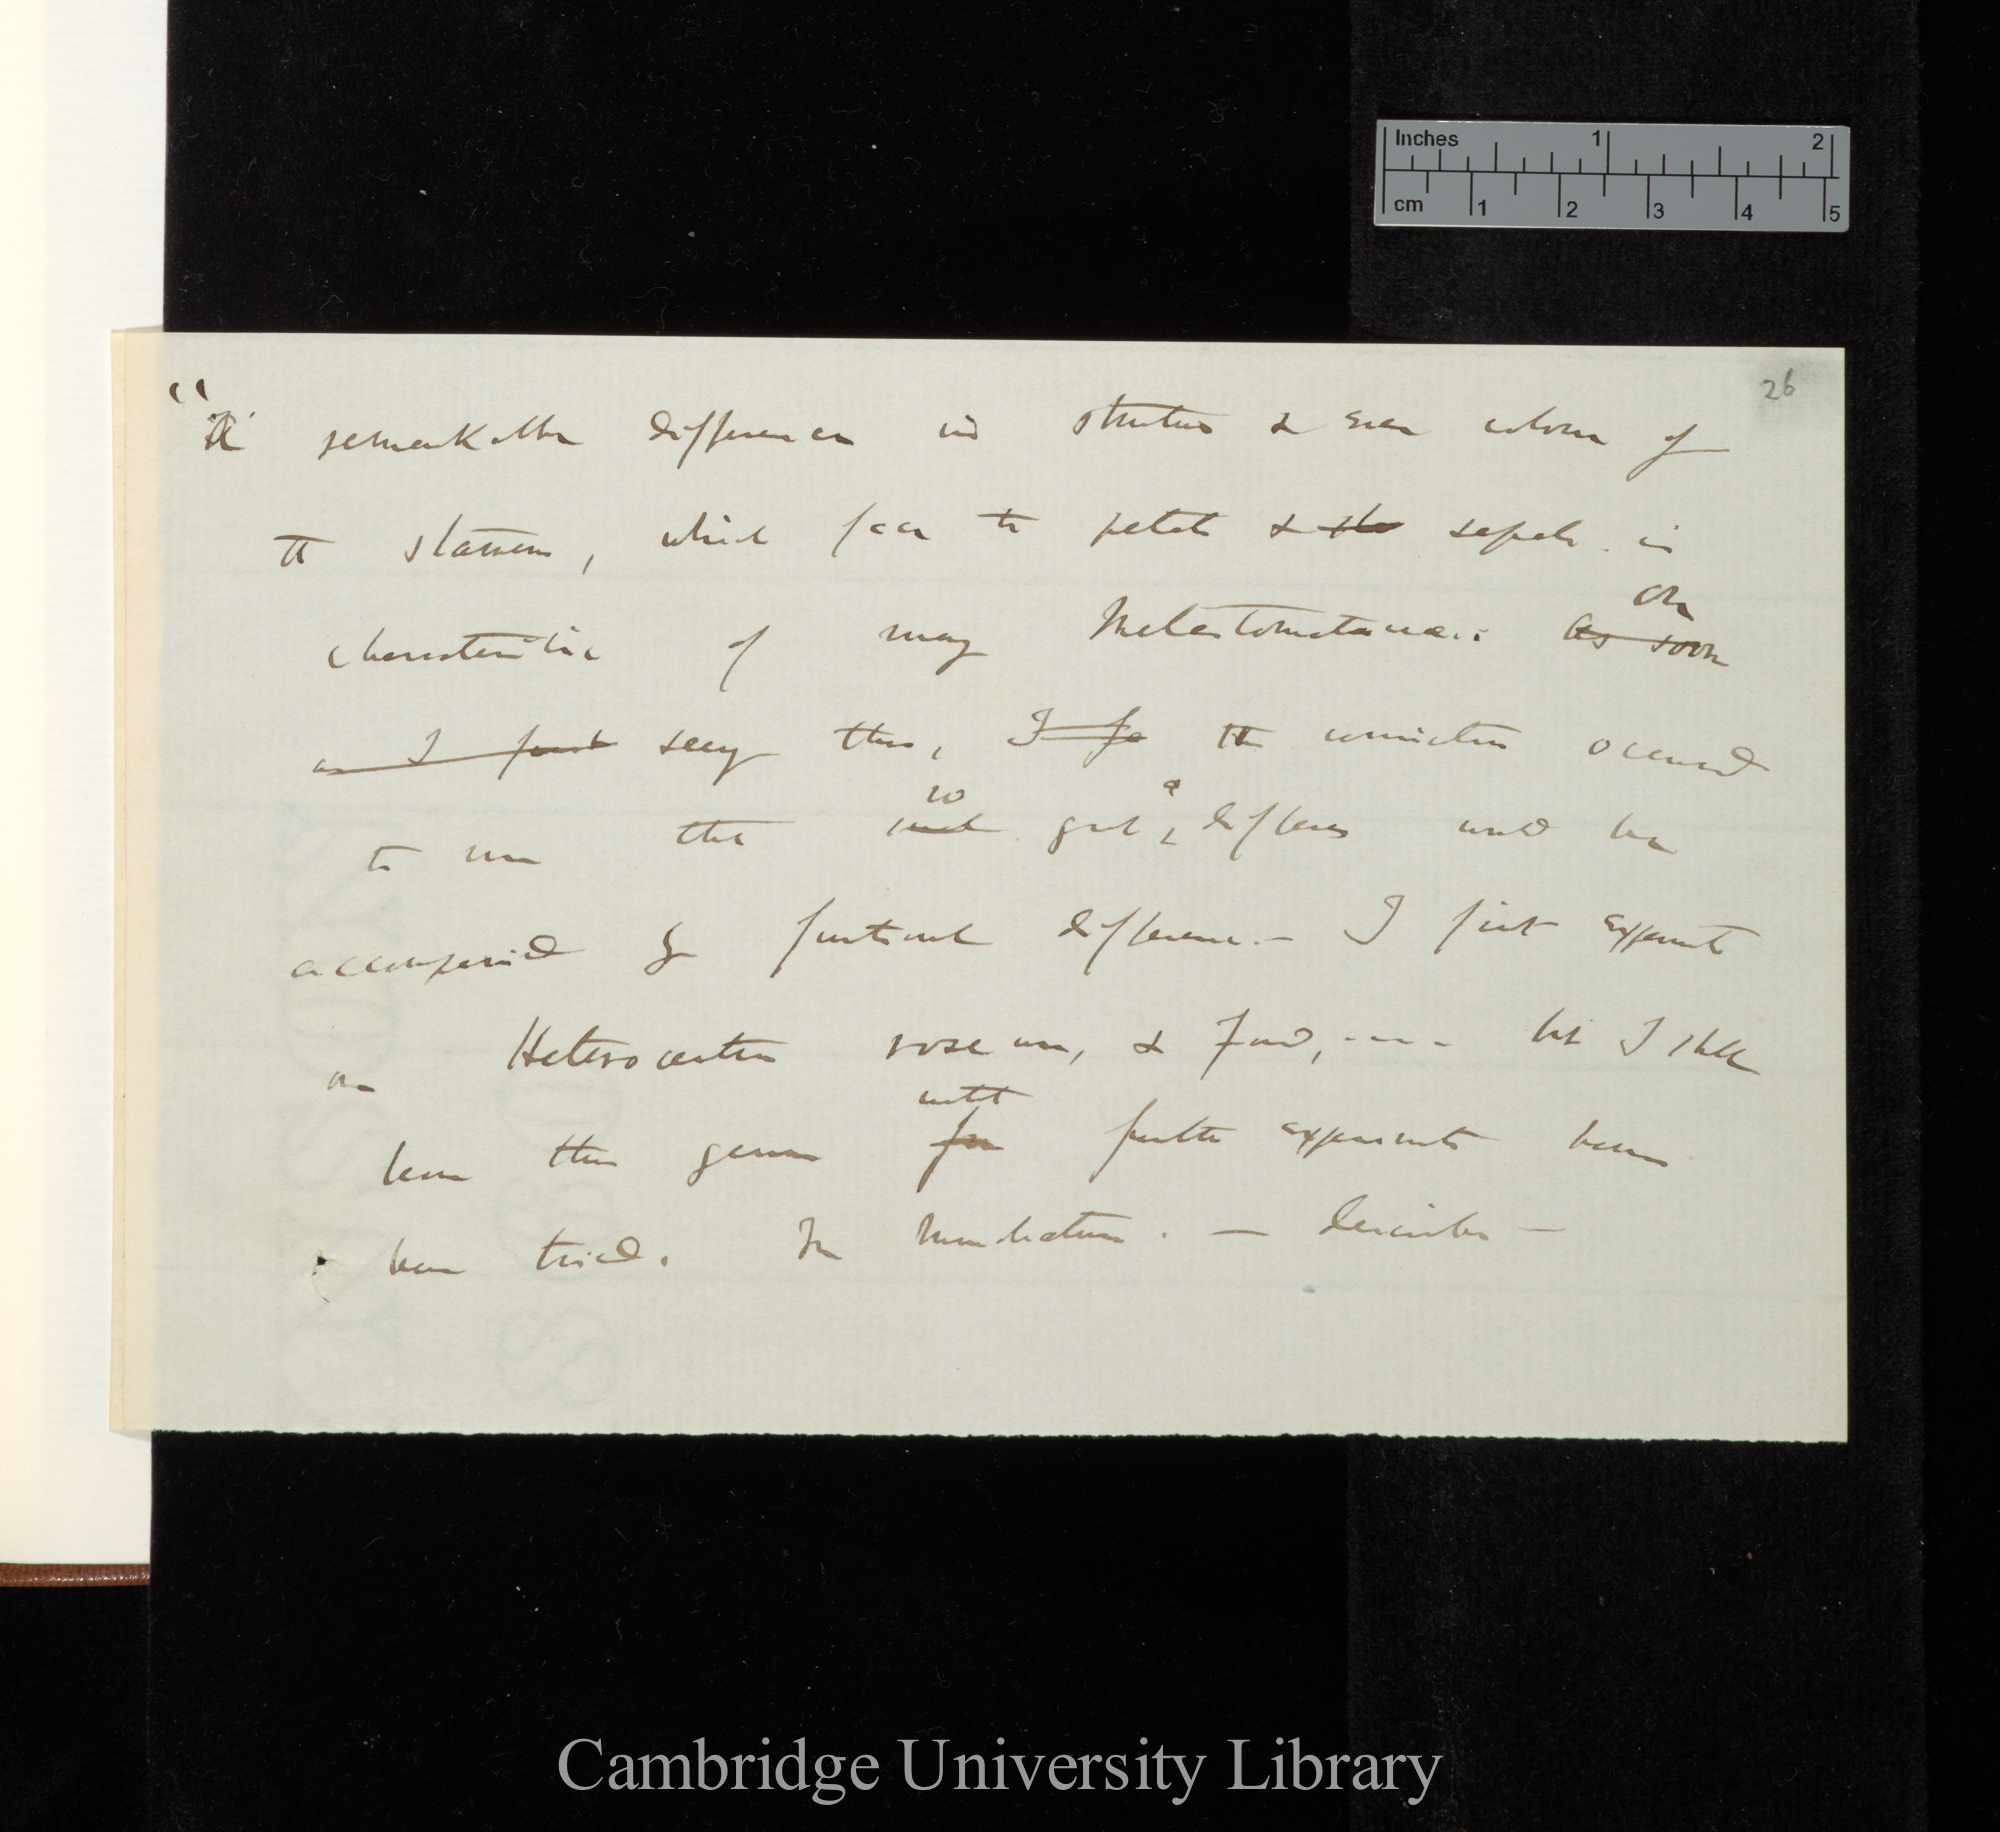 26
"The remarkable difference in structure & even colour of
the stamens, which face the petals & sepals is
characteristic of many Melastomataceae: As soon
On
as I first seeing this, I the conviction occurred
so a
to me that such great difference would be
accompanied by functional difference.— I first experiments
on Heterocentron roseum, & found, ---- but I shall
with
leave this genus for further experiments have
been tried. In Monochaetum. — describe —
Inches 1 2
cm 1 2 3 4 5
Cambridge University Library